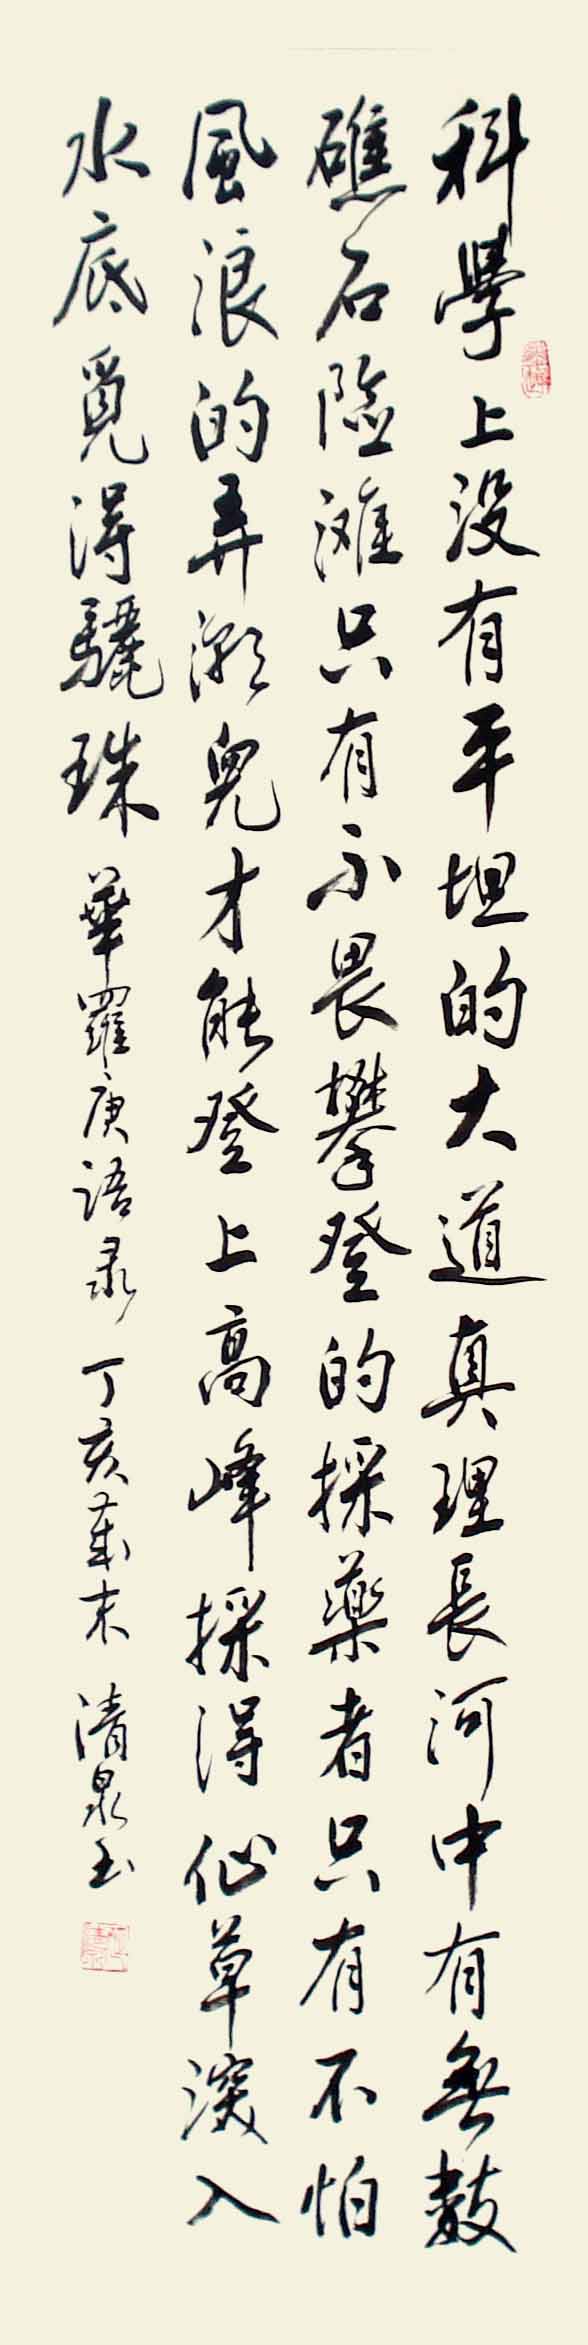 科學上没有平坦的大道真理長河中有無數
礁石險灘只有不畏攀登的採藥者只有不怕
風浪的弄潮兒才能登上高峰採得仙草深入
水底覓得驪珠 華羅庚語录 丁亥歲末 清泉书